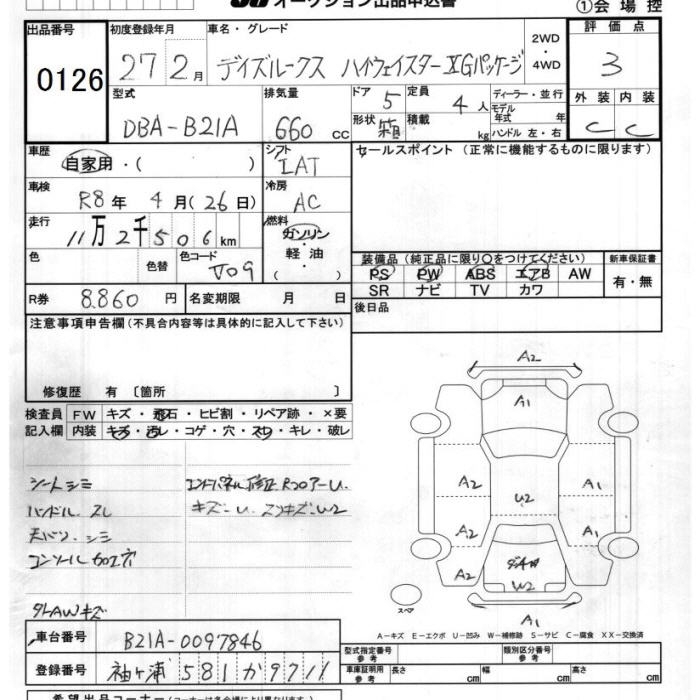 オークション出品申込書
①会場控
出品番号
0126
初度登録年月
27 2月
車名・グレード
デイズルークス ハイウェイスターXGパッケージ
2WD
・
4WD
評価点
3
型式
DBA-B21A
排気量
660 cc
ドア 5
定員 4人
形状 箱
積載 kg
ディーラー・並行
モデル年式 年式
ハンドル 左・右
外装 内装
C C
車歴
自家用・( )
シフト
IAT
セールスポイント (正常に機能するものに限ります)
車検
R8年 4月(26日)
冷房
AC
走行
11万2千506km
燃料
ガソリン
軽油
( )
色
色替
色コード
J09
装備品 (純正品に限り〇をつけてください)
新車保証書
PS PW ABS エアB AW
SR ナビ TV カワ
有・無
R券 8.860円
名変期限 月 日
後日品
注意事項申告欄(不具合内容等は具体的に記入して下さい)
修復歴 有 〔箇所 〕
検査員記入欄
FW キズ・飛石・ヒビ割・リペア跡・×要
内装 キズ・汚レ・コゲ・穴・スレ・キレ・破レ
シートシミ
ハンドル スレ
天バリ シミ
コンソール加工穴
タイAWキズ
A2
A1
A2 A2
U2
A2 A1
A2 W2 A2
A2
スペア
A−キズ E−エクボ U−凹み W−補修跡 S−サビ C−腐食 XX−交換済
車台番号
B21A-0097846
登録番号
袖ヶ浦 581 か 9711
型式指定番号 参考
類別区分番号 参考
車庫証明用 参考
長さ cm
幅 cm
高さ cm
希望出品コーナー